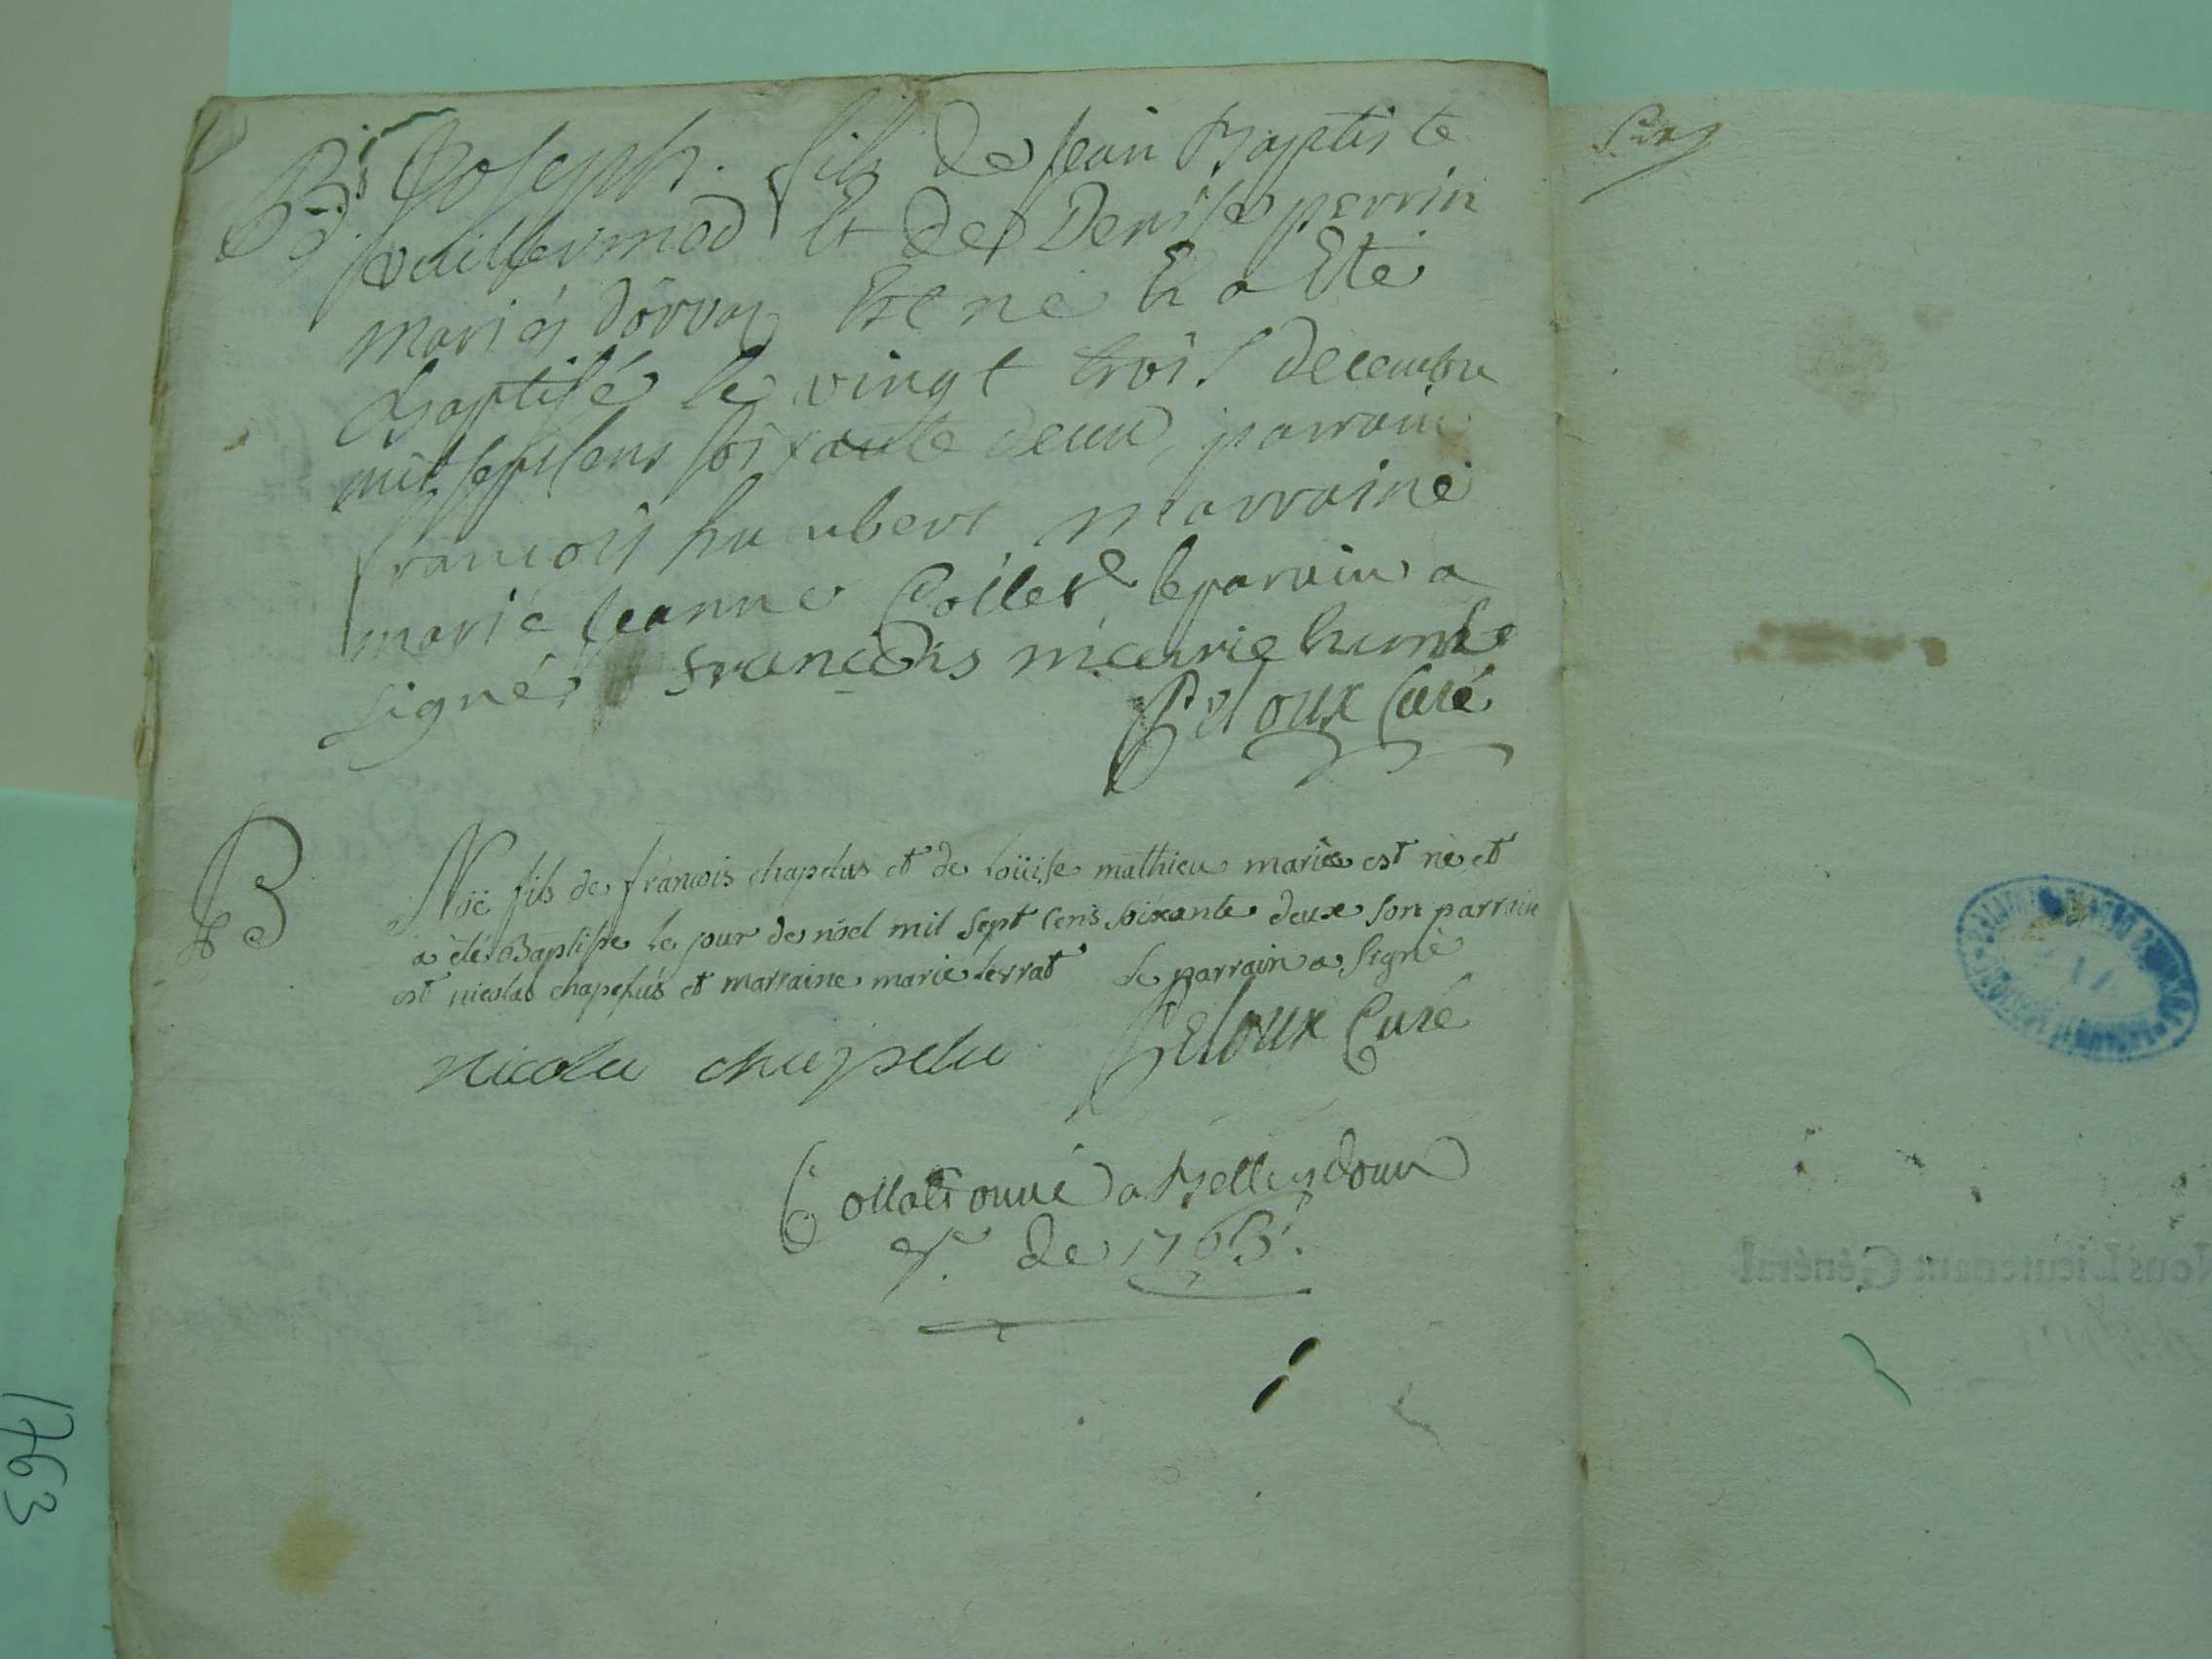 B Joseph. fils de Jean Baptiste
vuillermod Et de Denise perrin
mariés dórvay Est né Et a Eté
Baptisé le vingt trois decembre
mil sept cens soixante deux, parrain
francois humbert marraine
marie Jeanne Collet le parain a
signé francois marie humbe
Peloux Curé
B
Noë fils de francois chapelus et de Loüise mathieu mariés est né et
a été Baptisse le jour de noel mil sept cens soixante deux son parrain
est nicolas chapelus et marraine marie terrat le parrain a Signé
nicola chapelu Peloux Curé
Collationné a Belleydoux
de 1763.
1763
Nous Lieutenant Général